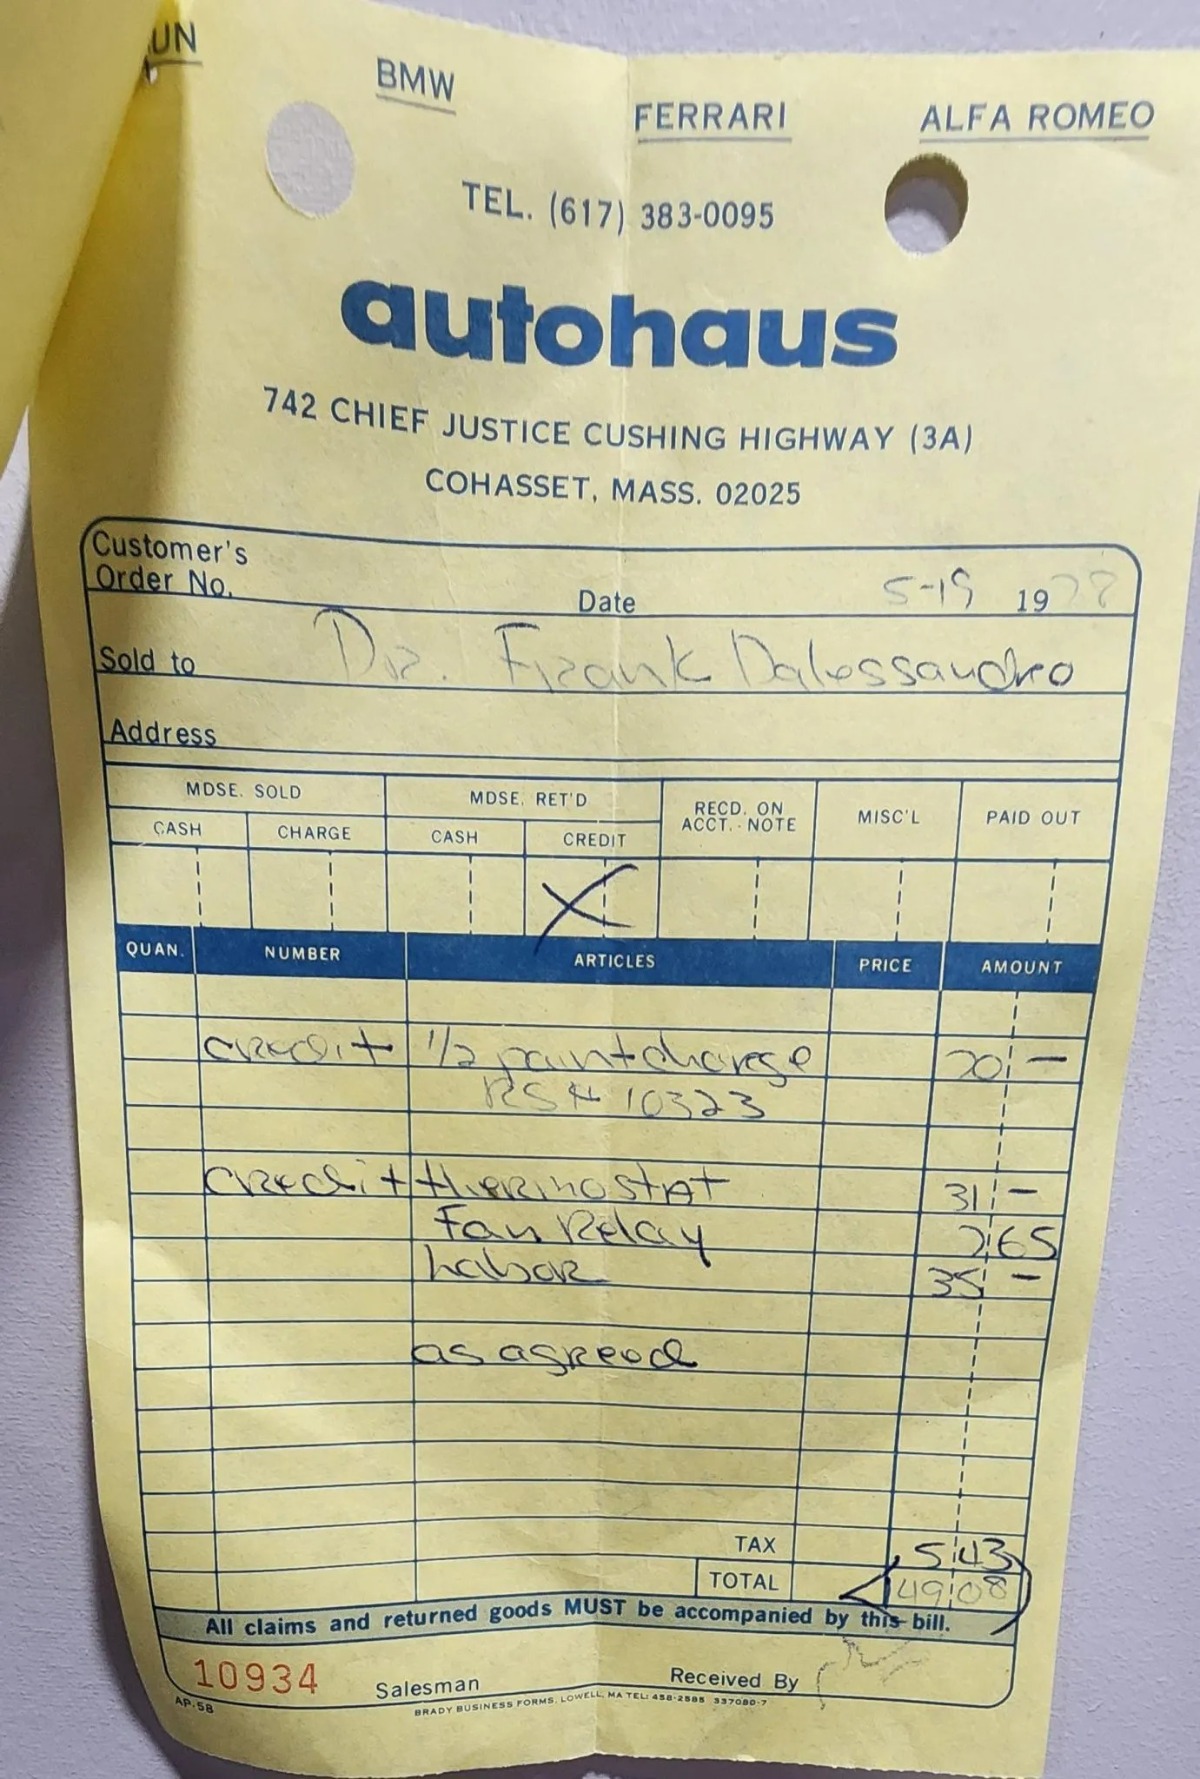 UN
BMW
FERRARI
ALFA ROMEO
TEL. (617) 383-0095
autohaus
742 CHIEF JUSTICE CUSHING HIGHWAY (3A)
COHASSET, MASS. 02025
Customer's
Order No. Date 5-19 1978
Sold to Dr. Frank Dalessandro
Address
MDSE. SOLD MDSE. RET'D RECD. ON ACCT. - NOTE MISC'L PAID OUT
CASH CHARGE CASH CREDIT
X
QUAN. NUMBER ARTICLES PRICE AMOUNT
credit 1/2 paint charge 70 —
RS# 10323
credit thermostat 31 —
Fan Relay 7 65
Labor 35 —
as agreed
TAX 5 43
TOTAL 149 08
All claims and returned goods MUST be accompanied by this bill.
10934 Salesman Received By
AP-5B BRADY BUSINESS FORMS, LOWELL, MA TEL: 458-2585 337080-7